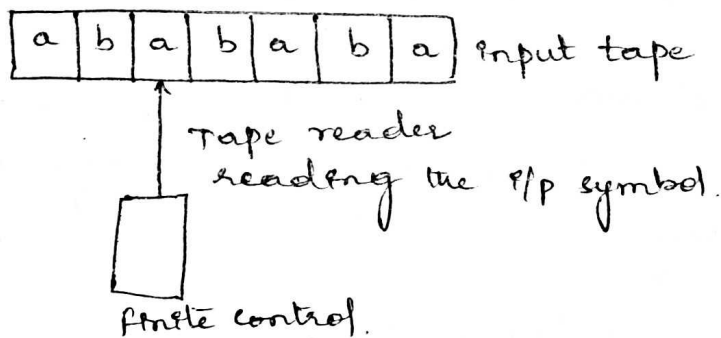 a b a b a b a input tape
Tape reader
reading the i/p symbol.
finite control.